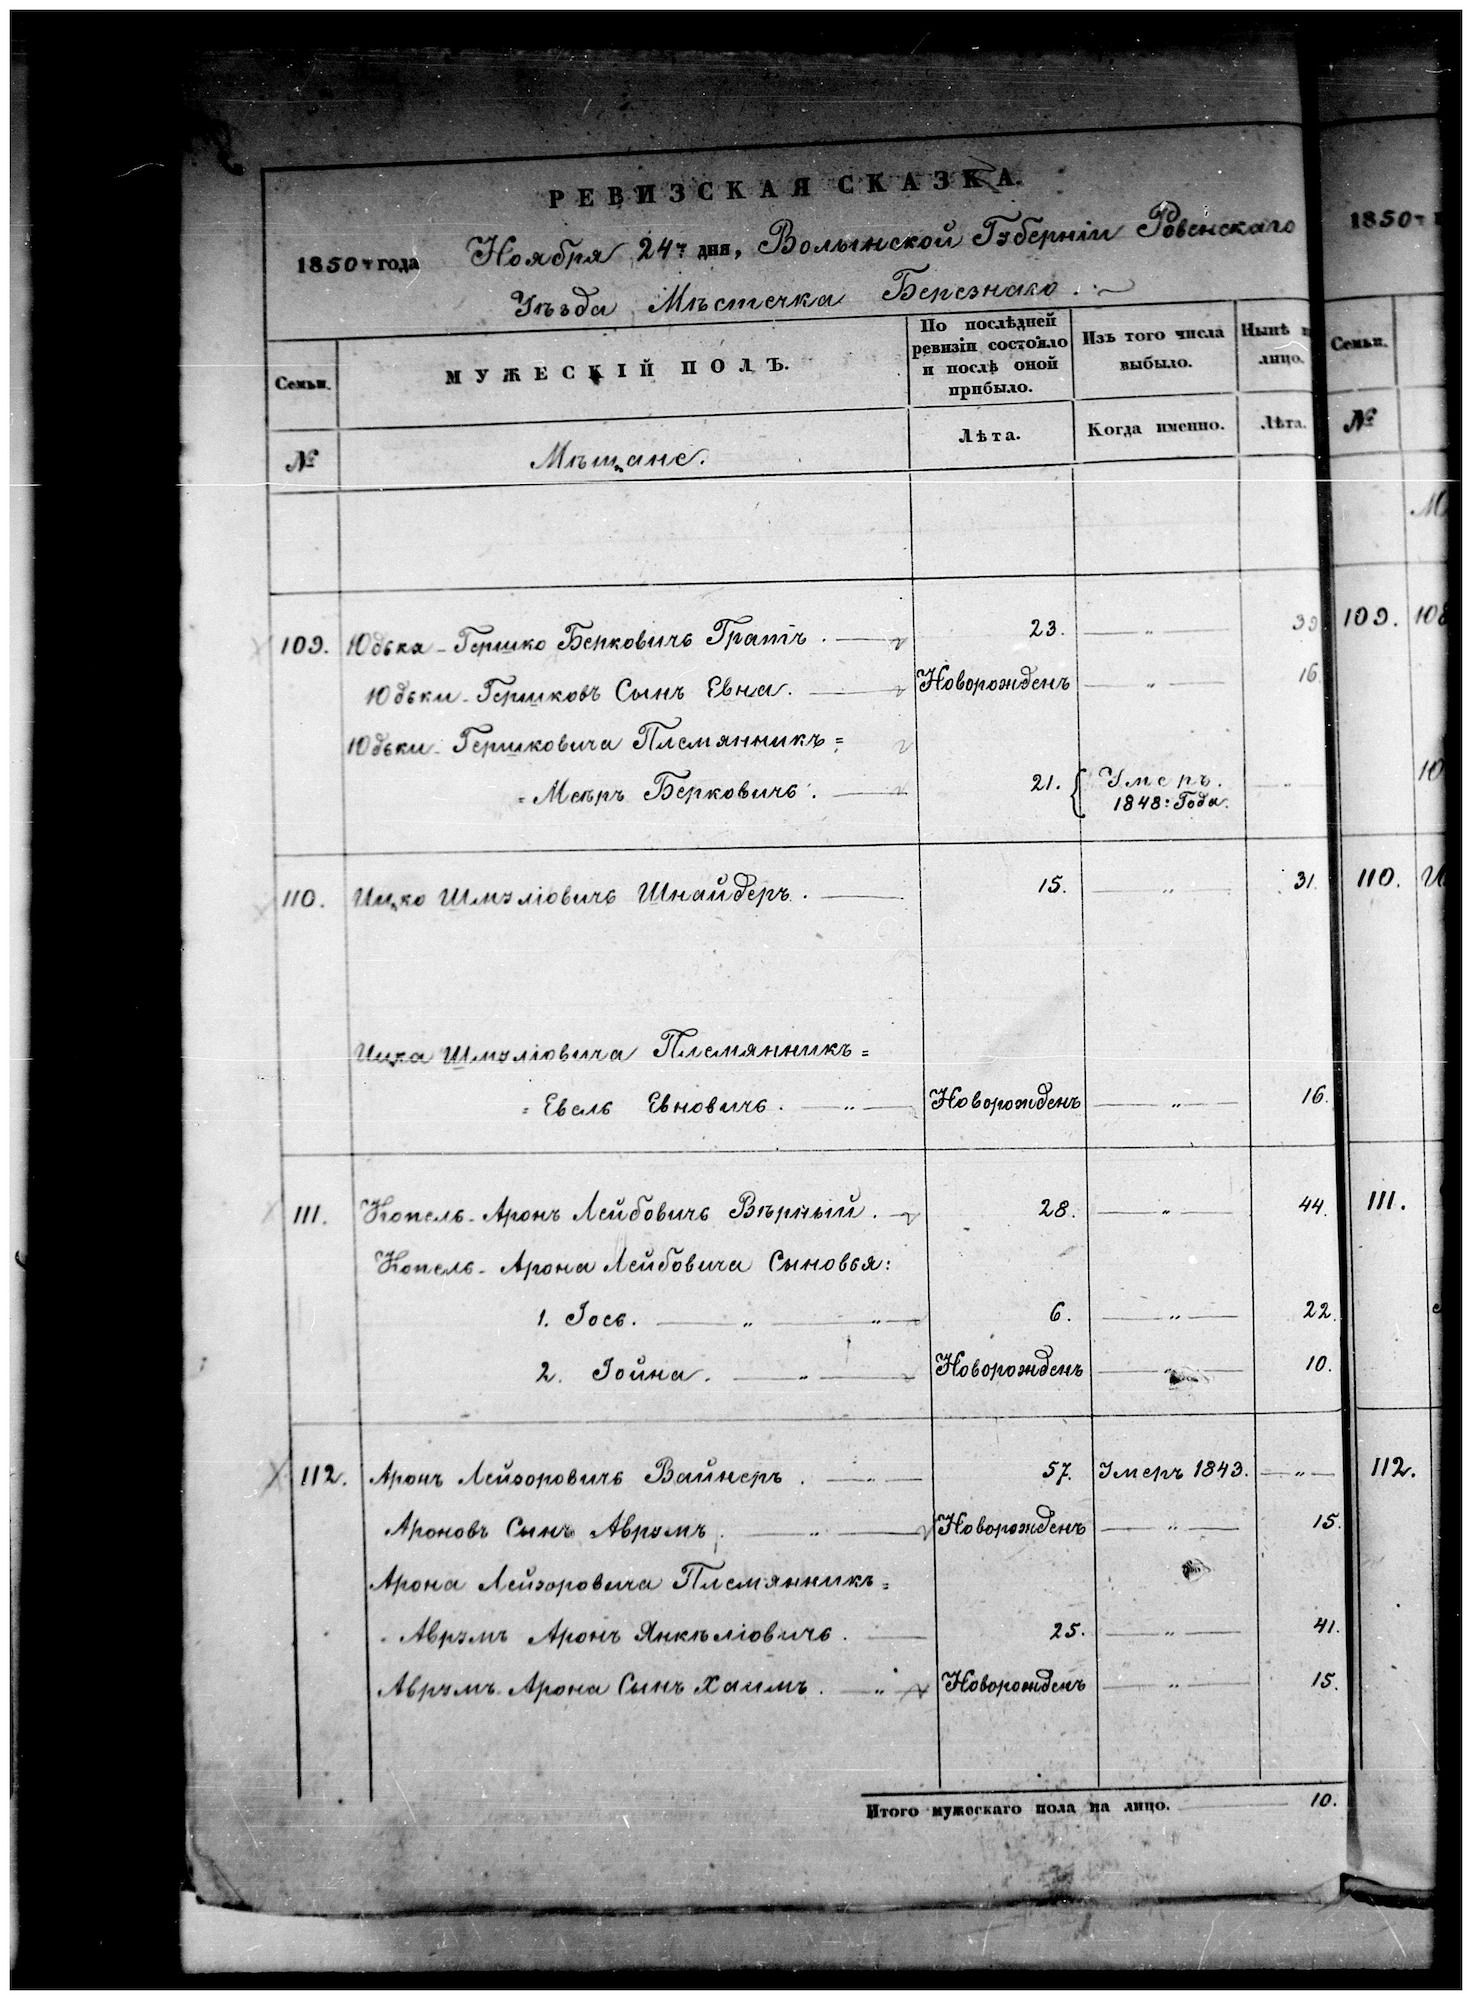 РЕВИЗСКАЯ СКАЗКА.
1850 года Ноября 24 дня, Волынской Губерніи Ровенскаго
Уѣзда Мѣстечка Березнако.
Семьи. МУЖЕСКІЙ ПОЛЪ. По послѣдней ревизіи состояло и послѣ оной прибыло. Изъ того числа выбыло. Нынѣ лицо. Семьи.
№ Мѣщане. Лѣта. Когда именно. Лѣта. №
109. Юдька-Гершко Берковичъ Грапъ. 23. — „ — 39 109.
Юдьки-Гершковъ Сынъ Евна. Новорожденъ — „ — 16.
Юдьки-Гершковича Племянникъ=
=Меѣръ Берковичь. 21. { Умеръ. 1848: Года. — „
110. Ицко Шмуліовичь Шнайдеръ. 15. — „ — 31. 110.
Ицка Шмуліовича Племянникъ=
=Евель Евновичь. — „ — Новорожденъ — „ — 16.
111. Копель-Аронъ Лейбовичь Вѣрный. 28. — „ — 44. 111.
Копель-Арона Лейбовича Сыновья:
1. Іось. — „ — „ — 6. — „ — 22.
2. Іойна. — „ — Новорожденъ — „ — 10.
112. Аронъ Лейзоровичь Вайнеръ. — „ — 57. Умеръ 1843. — „ — 112.
Ароновъ Сынъ Аврумъ. — „ — Новорожденъ — „ — 15.
Арона Лейзоровича Племянникъ=
=Аврумъ Аронъ Янкѣліовичь. — 25. — „ — 41.
Аврумъ-Арона Сынъ Хаимъ. — „ — Новорожденъ — „ — 15.
Итого мужескаго пола на лицо. — 10.